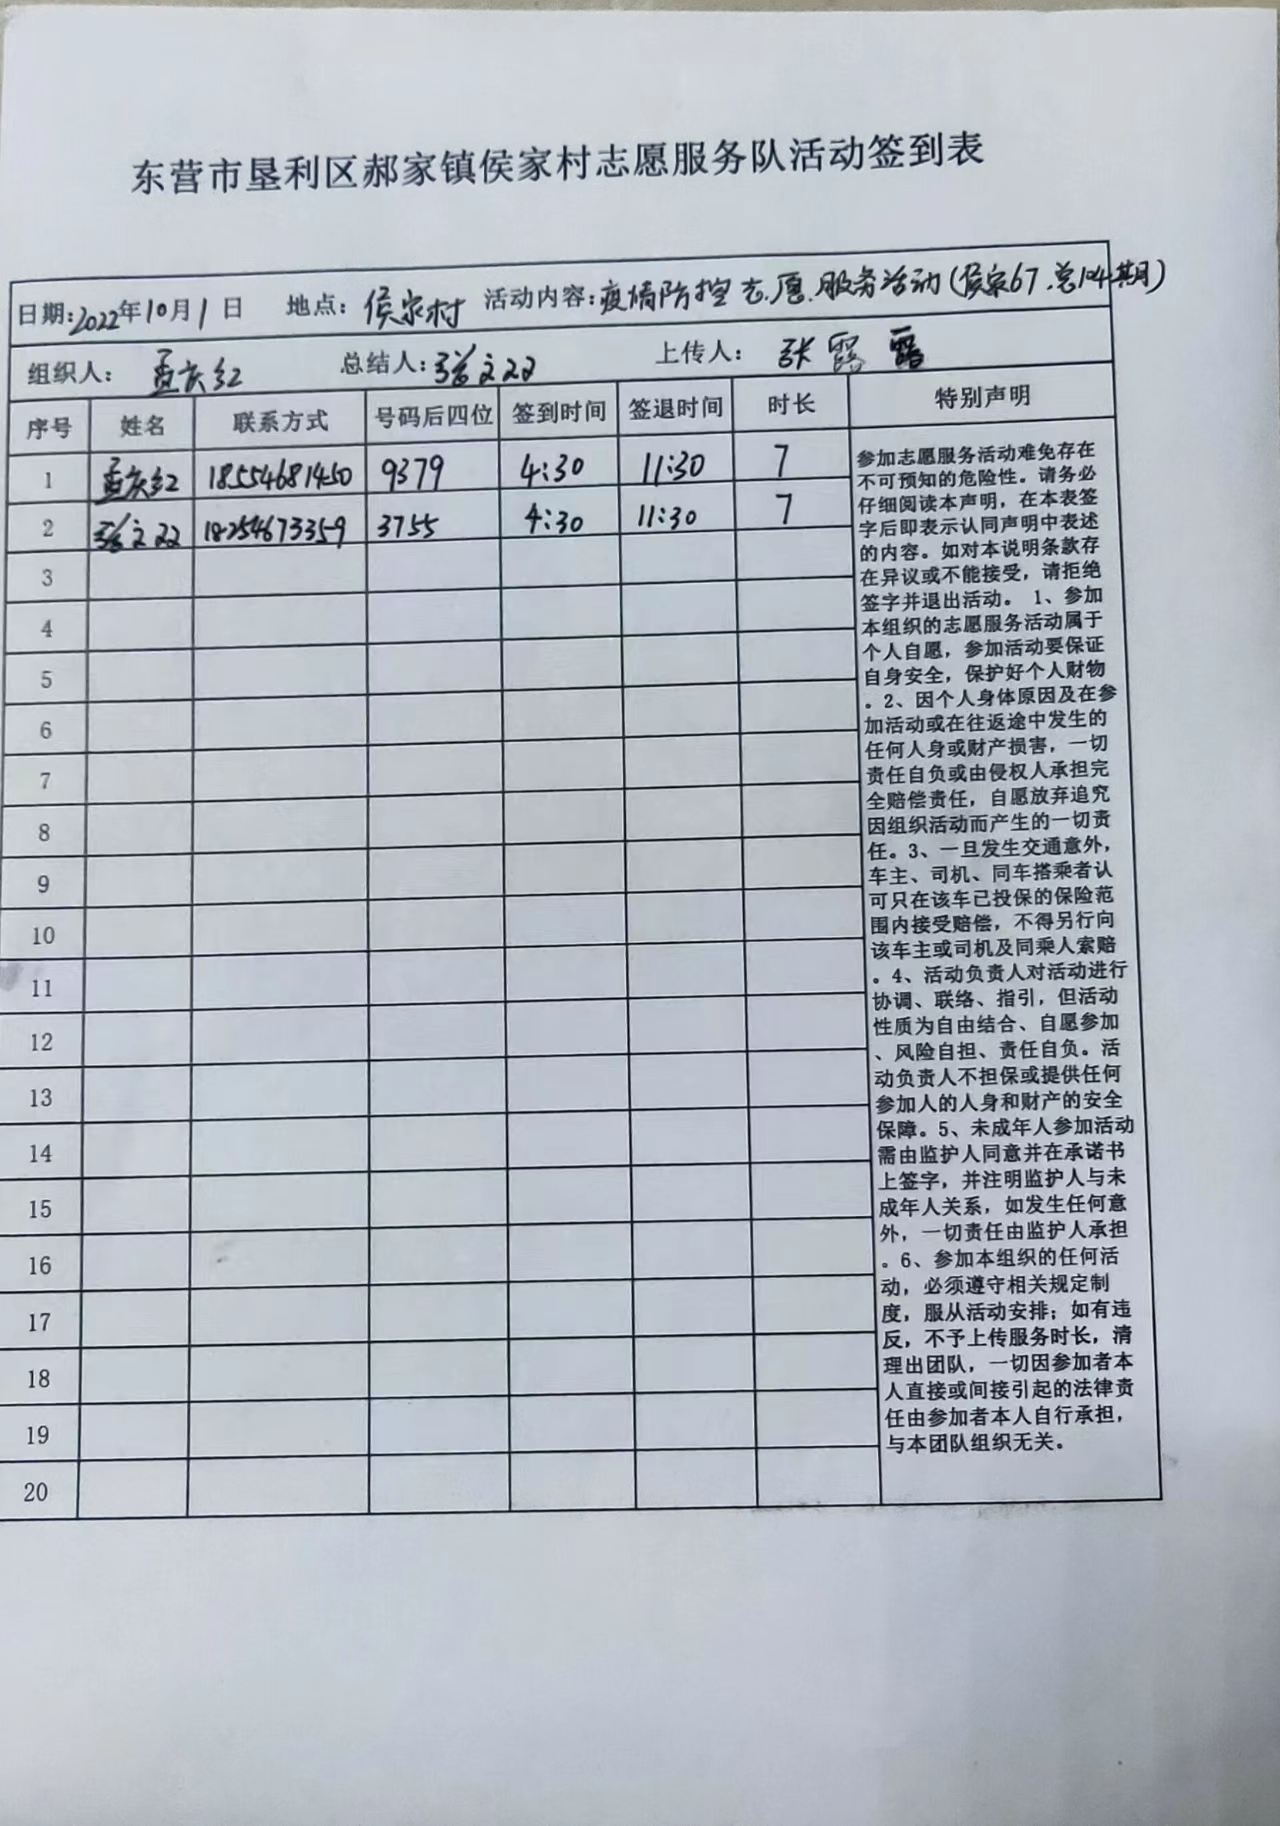 东营市垦利区郝家镇侯家村志愿服务队活动签到表
日期:2022年10月1日 地点:侯家村 活动内容:疫情防控志愿服务活动(侯家67.总104期)
组织人: 孟庆红 总结人: 上传人: 张露露
序号 姓名 联系方式 号码后四位 签到时间 签退时间 时长 特别声明
1 孟庆红 18554681450 9379 4:30 11:30 7
2 18254673359 3755 4:30 11:30 7
3
4
5
6
7
8
9
10
11
12
13
14
15
16
17
18
19
20
参加志愿服务活动难免存在
不可预知的危险性。请务必
仔细阅读本声明，在本表签
字后即表示认同声明中表述
的内容。如对本说明条款存
在异议或不能接受，请拒绝
签字并退出活动。 1、参加
本组织的志愿服务活动属于
个人自愿，参加活动要保证
自身安全，保护好个人财物
。2、因个人身体原因及在参
加活动或在往返途中发生的
任何人身或财产损害，一切
责任自负或由侵权人承担完
全赔偿责任，自愿放弃追究
因组织活动而产生的一切责
任。3、一旦发生交通意外，
车主、司机、同车搭乘者认
可只在该车已投保的保险范
围内接受赔偿，不得另行向
该车主或司机及同乘人索赔
。4、活动负责人对活动进行
协调、联络、指引，但活动
性质为自由结合、自愿参加
、风险自担、责任自负。活
动负责人不担保或提供任何
参加人的人身和财产的安全
保障。5、未成年人参加活动
需由监护人同意并在承诺书
上签字，并注明监护人与未
成年人关系，如发生任何意
外，一切责任由监护人承担
。6、参加本组织的任何活
动，必须遵守相关规定制
度，服从活动安排；如有违
反，不予上传服务时长，清
理出团队，一切因参加者本
人直接或间接引起的法律责
任由参加者本人自行承担，
与本团队组织无关。